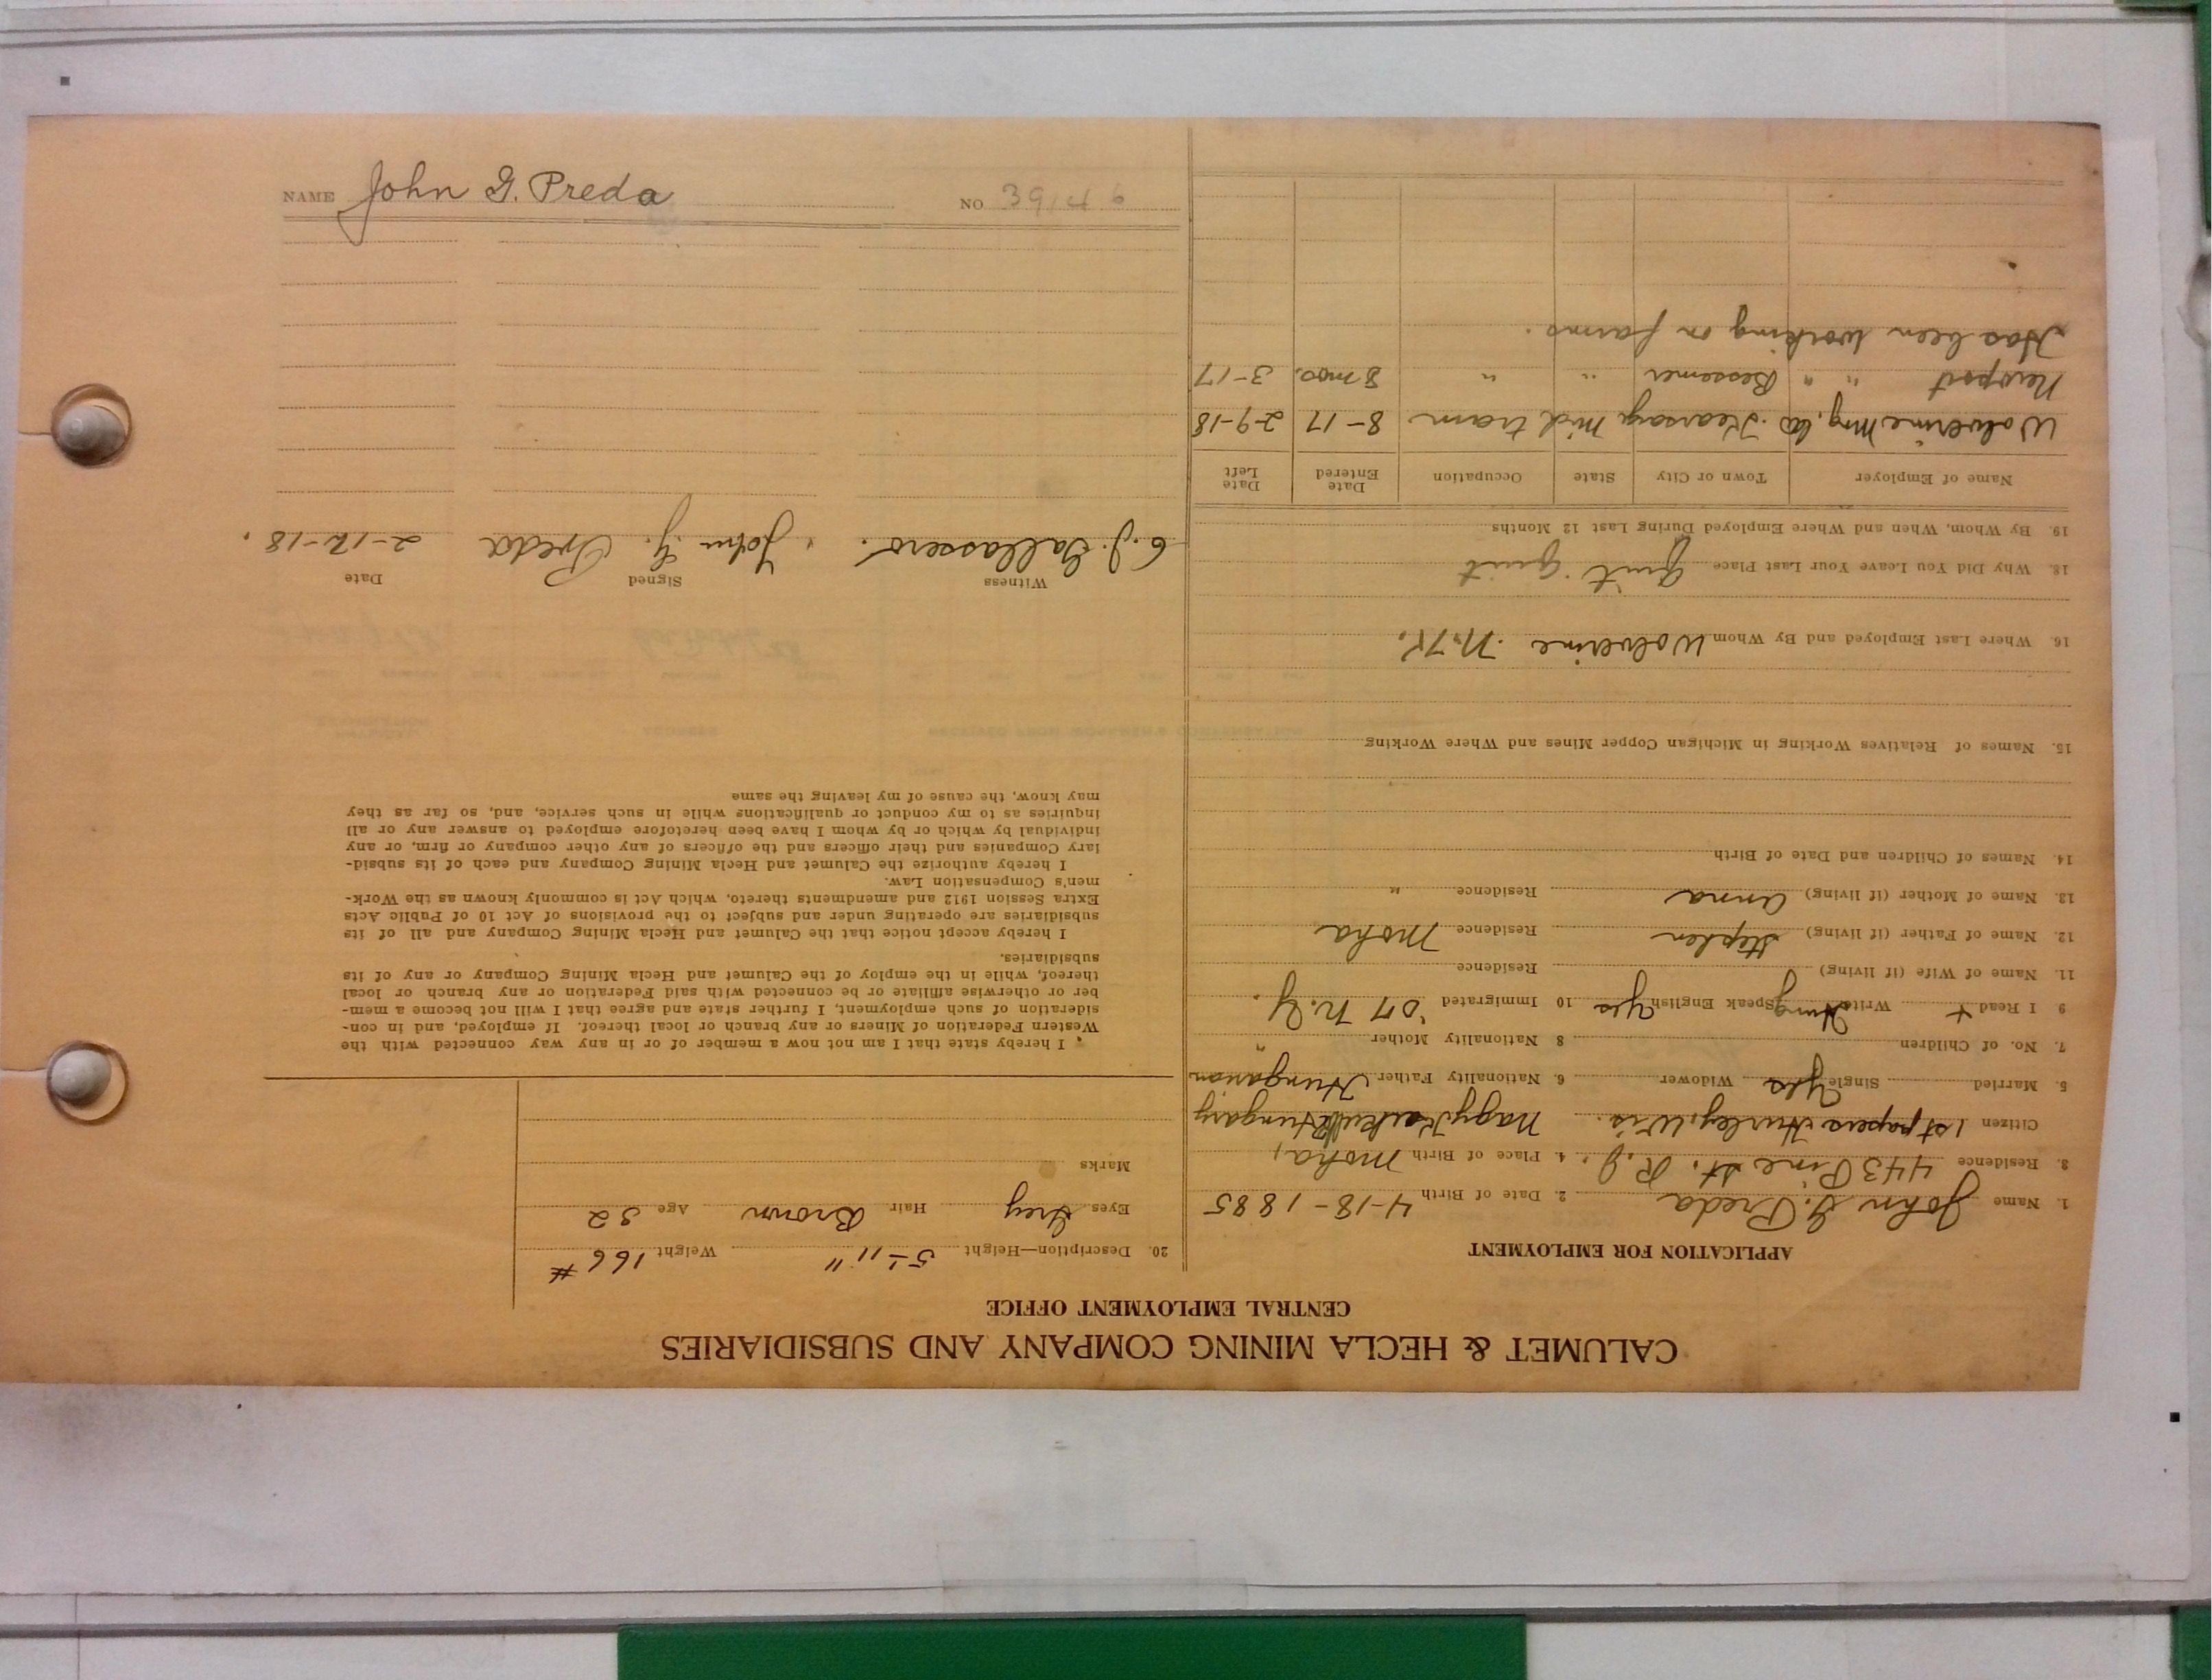 CALUMET & HECLA MINING COMPANY AND SUBSIDIARIES
CENTRAL EMPLOYMENT OFFICE
APPLICATION FOR EMPLOYMENT
1. Name John G. Preda 2. Date of Birth 4-18-1885
3. Residence 443 Pine St. R.J. 4. Place of Birth Moha,
Citizen 1st papers Hurley, Wis. Nagy Hungary
5. Married Single Yes Widower 6. Nationality Father Hungarian
7. No. of Children 8 Nationality Mother "
9 I Read + Write Hung Speak English Yes 10 Immigrated '07 N.Y.
11. Name of Wife (if living) Residence
12. Name of Father (if living) Stephen Residence Moha
13. Name of Mother (if living) Anna Residence "
14. Names of Children and Date of Birth
15. Names of Relatives Working in Michigan Copper Mines and Where Working
16. Where Last Employed and By Whom Wolverine
18. Why Did You Leave Your Last Place quit quit
19. By Whom, When and Where Employed During Last 12 Months
Name of Employer Town or City State Occupation Date Entered Date Left
Wolverine Mng. Co. Kearsarge Mich tram 8-17 2-9-18
Newport " " Bessemer " " 8 mos. 3-17
Has been working on farms.
20. Description—Height 5'-11" Weight 166 #
Eyes Grey Hair Brown Age 32
Marks
I hereby state that I am not now a member of or in any way connected with the
Western Federation of Miners or any branch or local thereof. If employed, and in con-
sideration of such employment, I further state and agree that I will not become a mem-
ber or otherwise affiliate or be connected with said Federation or any branch or local
thereof, while in the employ of the Calumet and Hecla Mining Company or any of its
subsidiaries.
I hereby accept notice that the Calumet and Hecla Mining Company and all of its
subsidiaries are operating under and subject to the provisions of Act 10 of Public Acts
Extra Session 1912 and amendments thereto, which Act is commonly known as the Work-
men's Compensation Law.
I hereby authorize the Calumet and Hecla Mining Company and each of its subsid-
iary Companies and their officers and the officers of any other company or firm, or any
individual by which or by whom I have been heretofore employed to answer any or all
inquiries as to my conduct or qualifications while in such service, and, so far as they
may know, the cause of my leaving the same
Witness Signed Date
C.J. Gallassero. John G. Preda 2-12-18.
NAME John G. Preda NO 39146